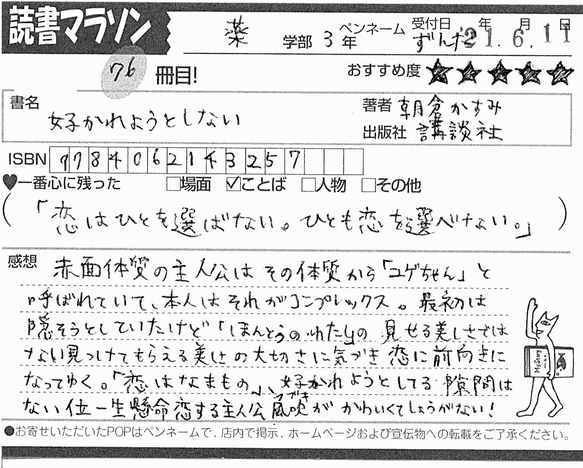 読書マラソン
薬 学部 3 年 ペンネーム ずんだ 受付日 21年 6月 11日
76 冊目!
おすすめ度 ★★★★★
書名 好かれようとしない
著者 朝倉かすみ
出版社 講談社
ISBN 9784062143257
♥一番心に残った □場面 ☑ことば □人物 □その他
(「恋はひとを選ばない。ひとも恋を選べない。」)
感想 赤面体質の主人公はその体質から「ユゲちゃん」と
呼ばれていて、本人はそれがコンプレックス。最初は
隠そうとしていたけど「ほんとうのわたし」の見せる美しさでは
ない見つけてもらえる美しさの大切さに気づき恋に前向きに
なってゆく。「恋はなまもの」、好かれようとしてる隙間は
ない位一生懸命恋する主人公風吹がかわいくてしょうがない!
ふぶき
●お寄せいただいたPOPはペンネームで、店内で掲示、ホームページおよび宣伝物への転載をご了承ください。